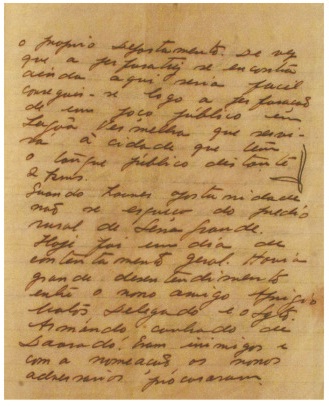 o proprio Departamento. De vez
que a perfuratriz se encontra
ainda aqui seria facil
conseguir-se logo a perfuração
de um poço público em
Lagôa Vermelha que servi-
ra à cidade que tem
o tanque público distante
2 kms.
Quando houver oportunidade
não se esqueça do predio
rural de Serra Grande.
Hoje foi um dia de
contentamento geral. Havia
grande desentendimento
entre o nosso amigo
Matos, Delegado e o Sgto.
Armando cunhado de
Eram inimigos e
com a nomeação os nossos
adversarios procuraram